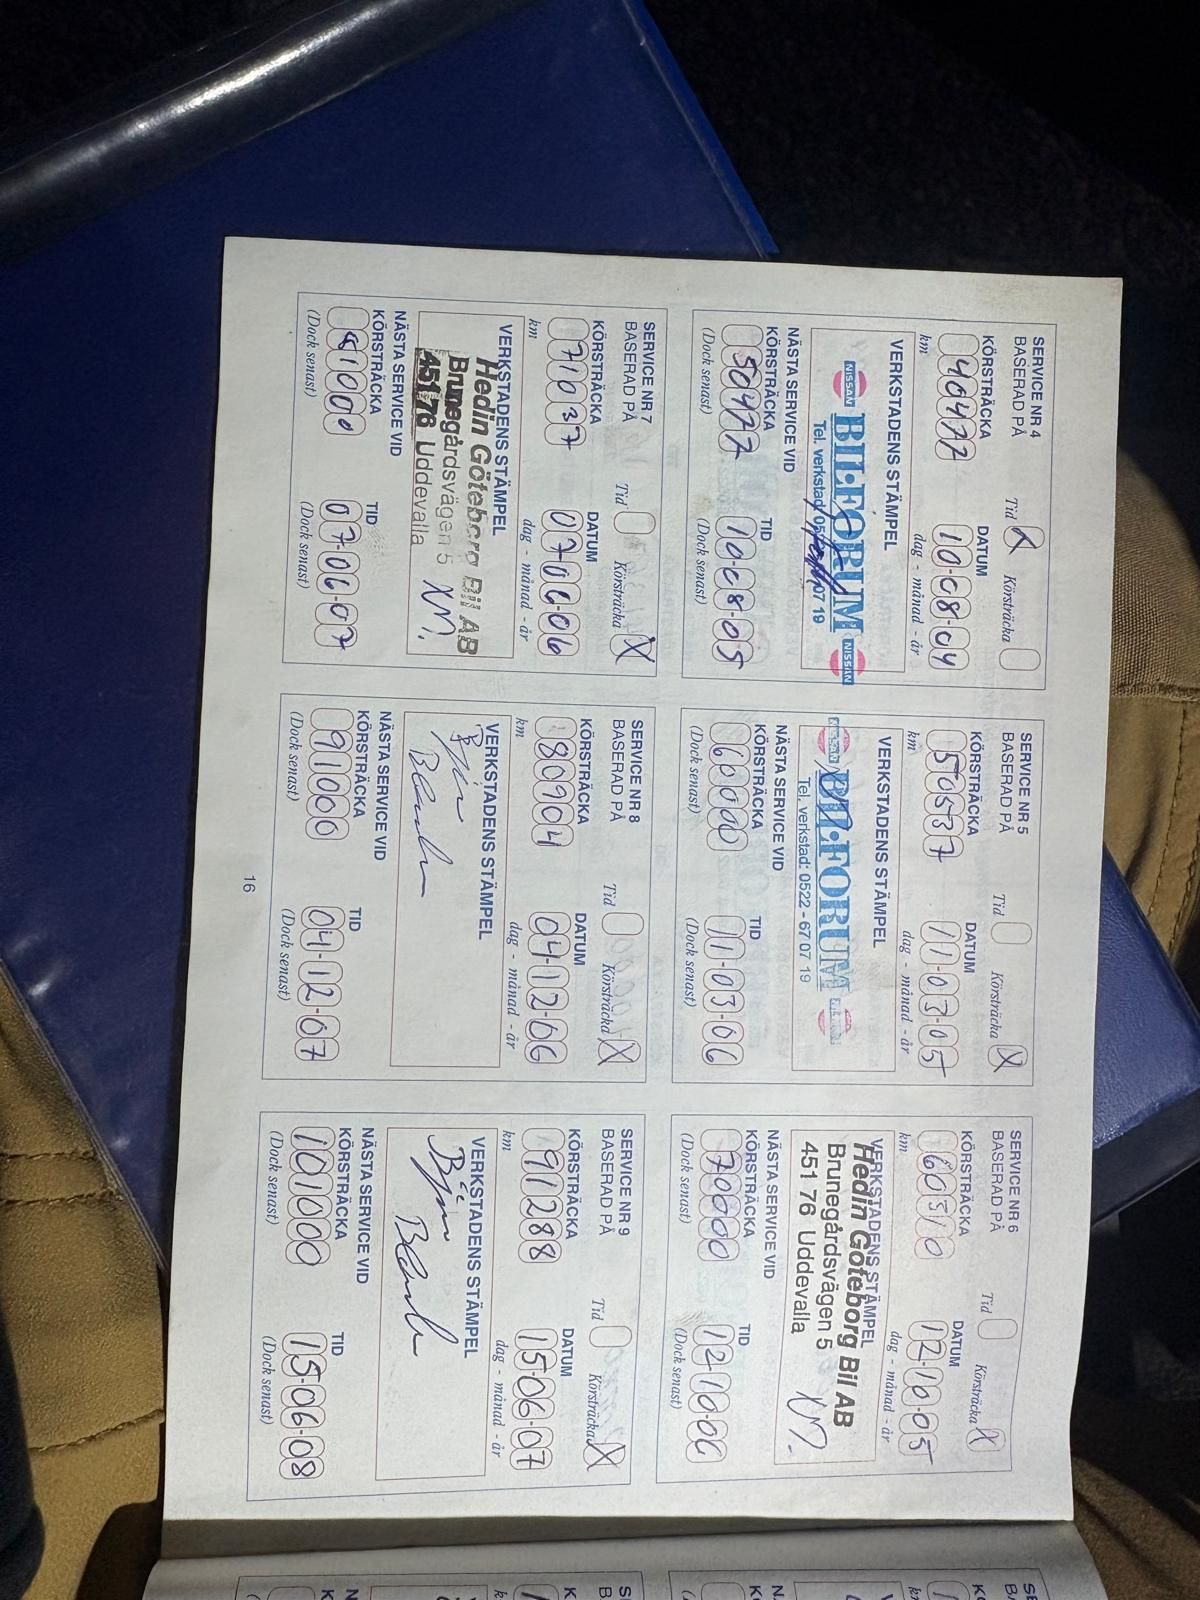 SERVICE NR 4
BASERAD PÅ Tid X Körsträcka
KÖRSTRÄCKA DATUM
40477 10-08-04
km dag - månad - år
VERKSTADENS STÄMPEL
NISSAN BIL-FORUM NISSAN
Tel. verkstad 07 19
NÄSTA SERVICE VID
KÖRSTRÄCKA TID
50477 10-08-05
(Dock senast) (Dock senast)
SERVICE NR 5
BASERAD PÅ Tid Körsträcka X
KÖRSTRÄCKA DATUM
50537 11-03-05
km dag - månad - år
VERKSTADENS STÄMPEL
BIL-FORUM
Tel. verkstad: 0522 - 67 07 19
NÄSTA SERVICE VID
KÖRSTRÄCKA TID
60000 11-03-06
(Dock senast) (Dock senast)
SERVICE NR 6
BASERAD PÅ Tid Körsträcka X
KÖRSTRÄCKA DATUM
60510 12-10-05
km dag - månad - år
VERKSTADENS STÄMPEL
Hedin Göteborg Bil AB
Brunegårdsvägen 5
451 76 Uddevalla
NÄSTA SERVICE VID
KÖRSTRÄCKA TID
70000 12-10-06
(Dock senast) (Dock senast)
SERVICE NR 7
BASERAD PÅ Tid Körsträcka X
KÖRSTRÄCKA DATUM
71037 07-06-06
km dag - månad - år
VERKSTADENS STÄMPEL
Hedin Göteborg Bil AB
Brunegårdsvägen 5
451 76 Uddevalla
NÄSTA SERVICE VID
KÖRSTRÄCKA TID
81000 07-06-07
(Dock senast) (Dock senast)
SERVICE NR 8
BASERAD PÅ Tid Körsträcka X
KÖRSTRÄCKA DATUM
80904 04-12-06
km dag - månad - år
VERKSTADENS STÄMPEL
NÄSTA SERVICE VID
KÖRSTRÄCKA TID
91000 04-12-07
(Dock senast) (Dock senast)
SERVICE NR 9
BASERAD PÅ Tid Körsträcka X
KÖRSTRÄCKA DATUM
91288 15-06-07
km dag - månad - år
VERKSTADENS STÄMPEL
NÄSTA SERVICE VID
KÖRSTRÄCKA TID
101000 15-06-08
(Dock senast) (Dock senast)
16